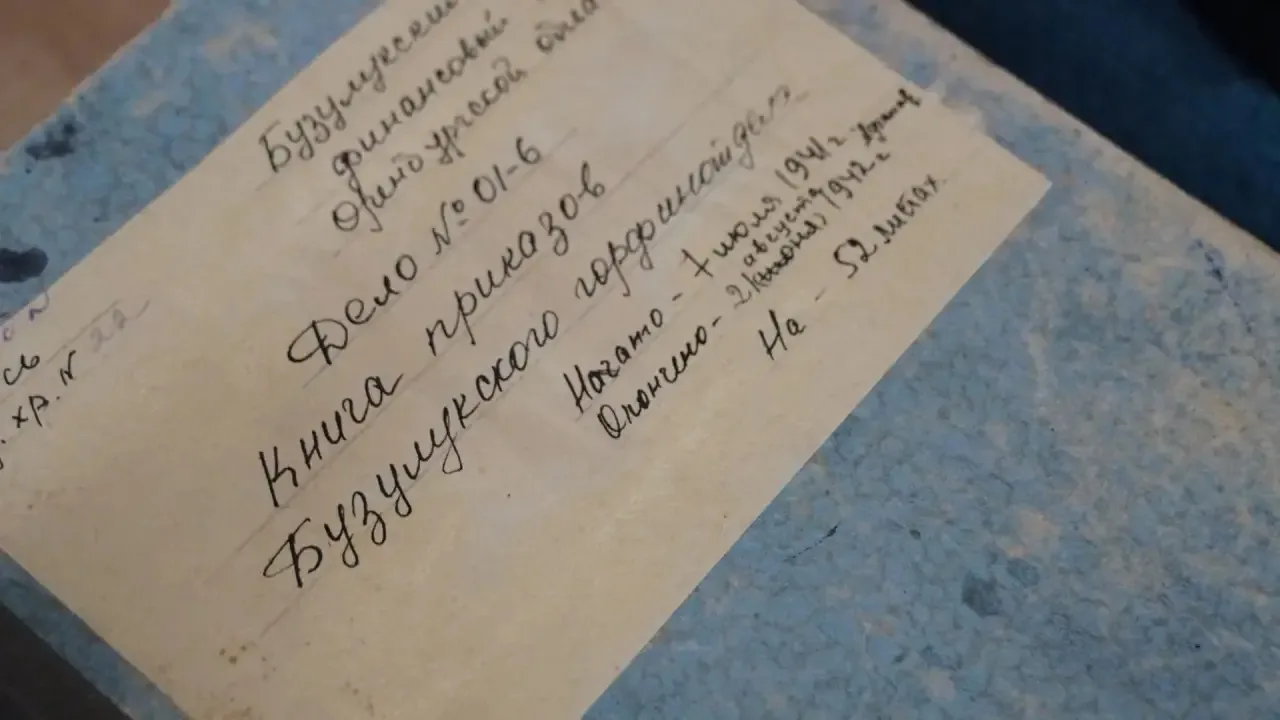 Бузулукский
финансовый
Оренбургской обла
Дело № 01-6
Книга приказов
Бузулукского горфинотдел
Начато - 7 июля 1941 г.
августа
Окончено - 2 июня 1942 г.
На - 52 листах.
сь
. хр. N 22